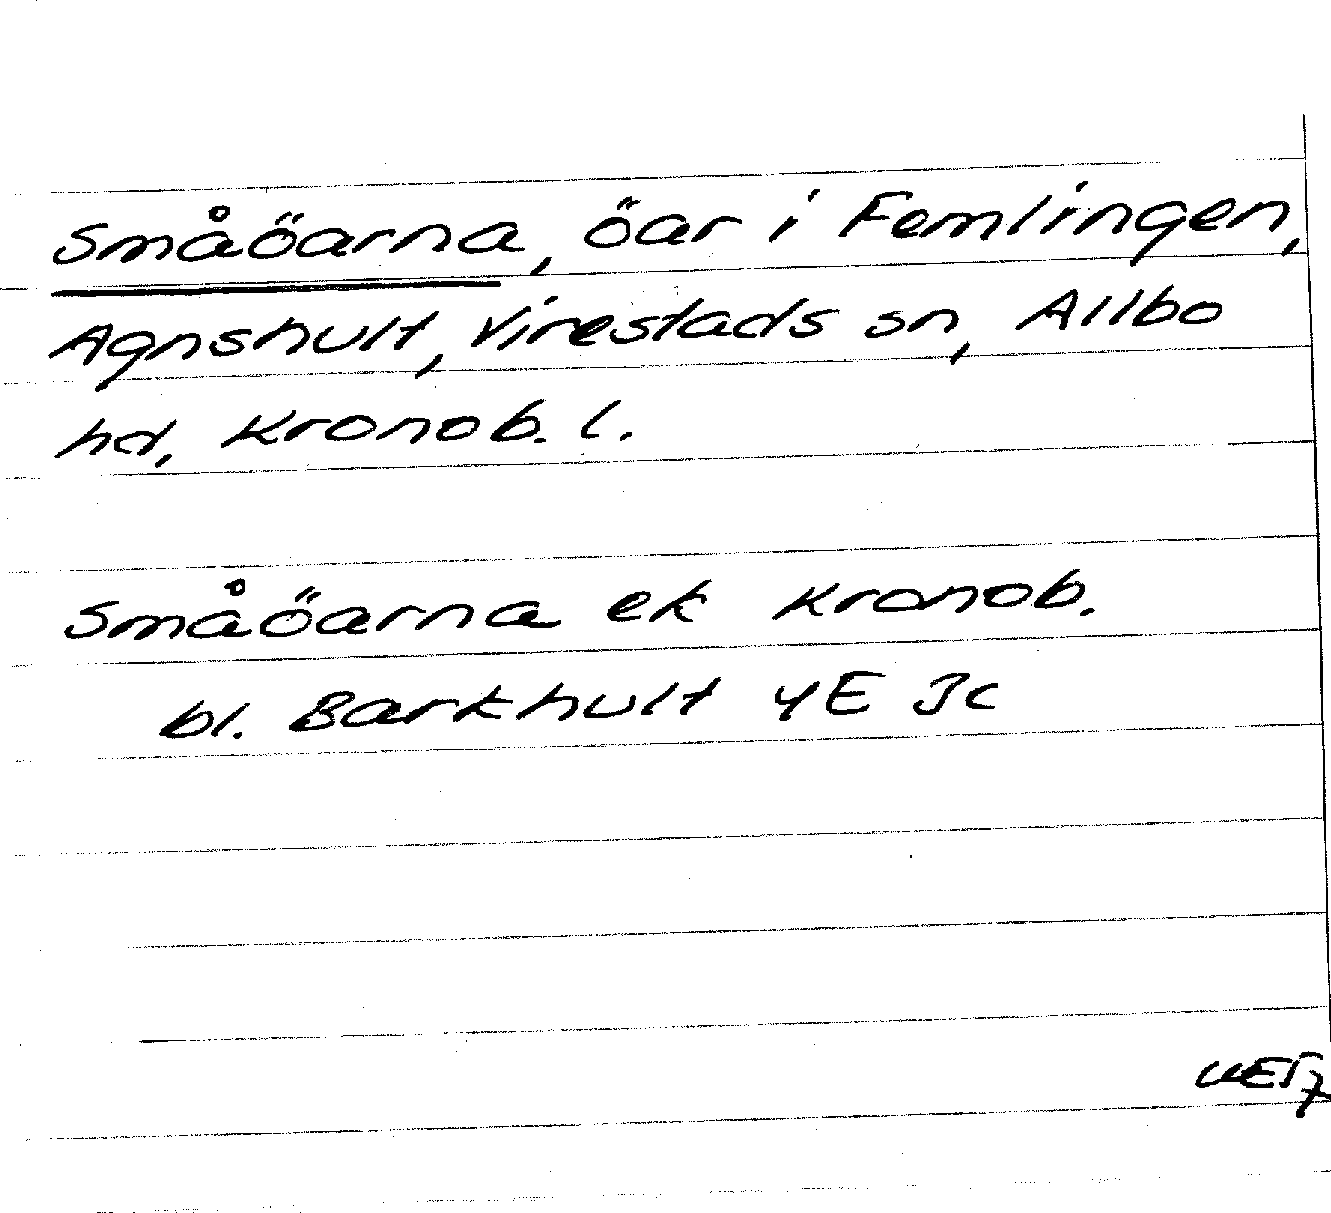 Småöarna, öar i Femlingen,
Agnshult, Virestads sn, Allbo
hd, Kronob. l.
Småöarna ek Kronob.
bl. Barkhult 4E 3c